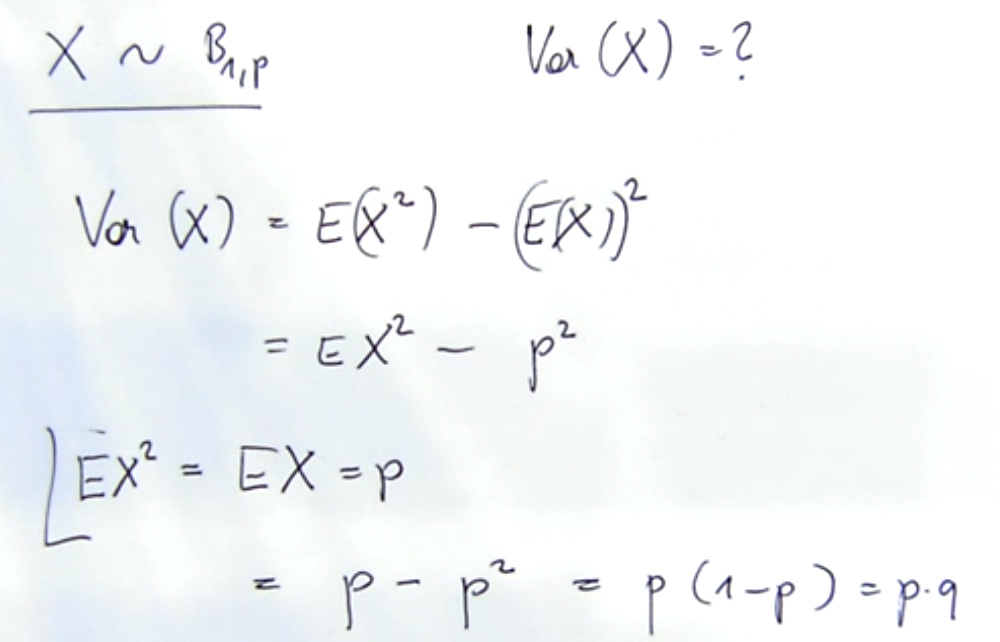 X ~ B₁,ₚ Var (X) = ?
Var (X) = E(X²) - (E(X))²
= EX² - p²
EX² = EX = p
= p - p² = p (1-p) = p·q